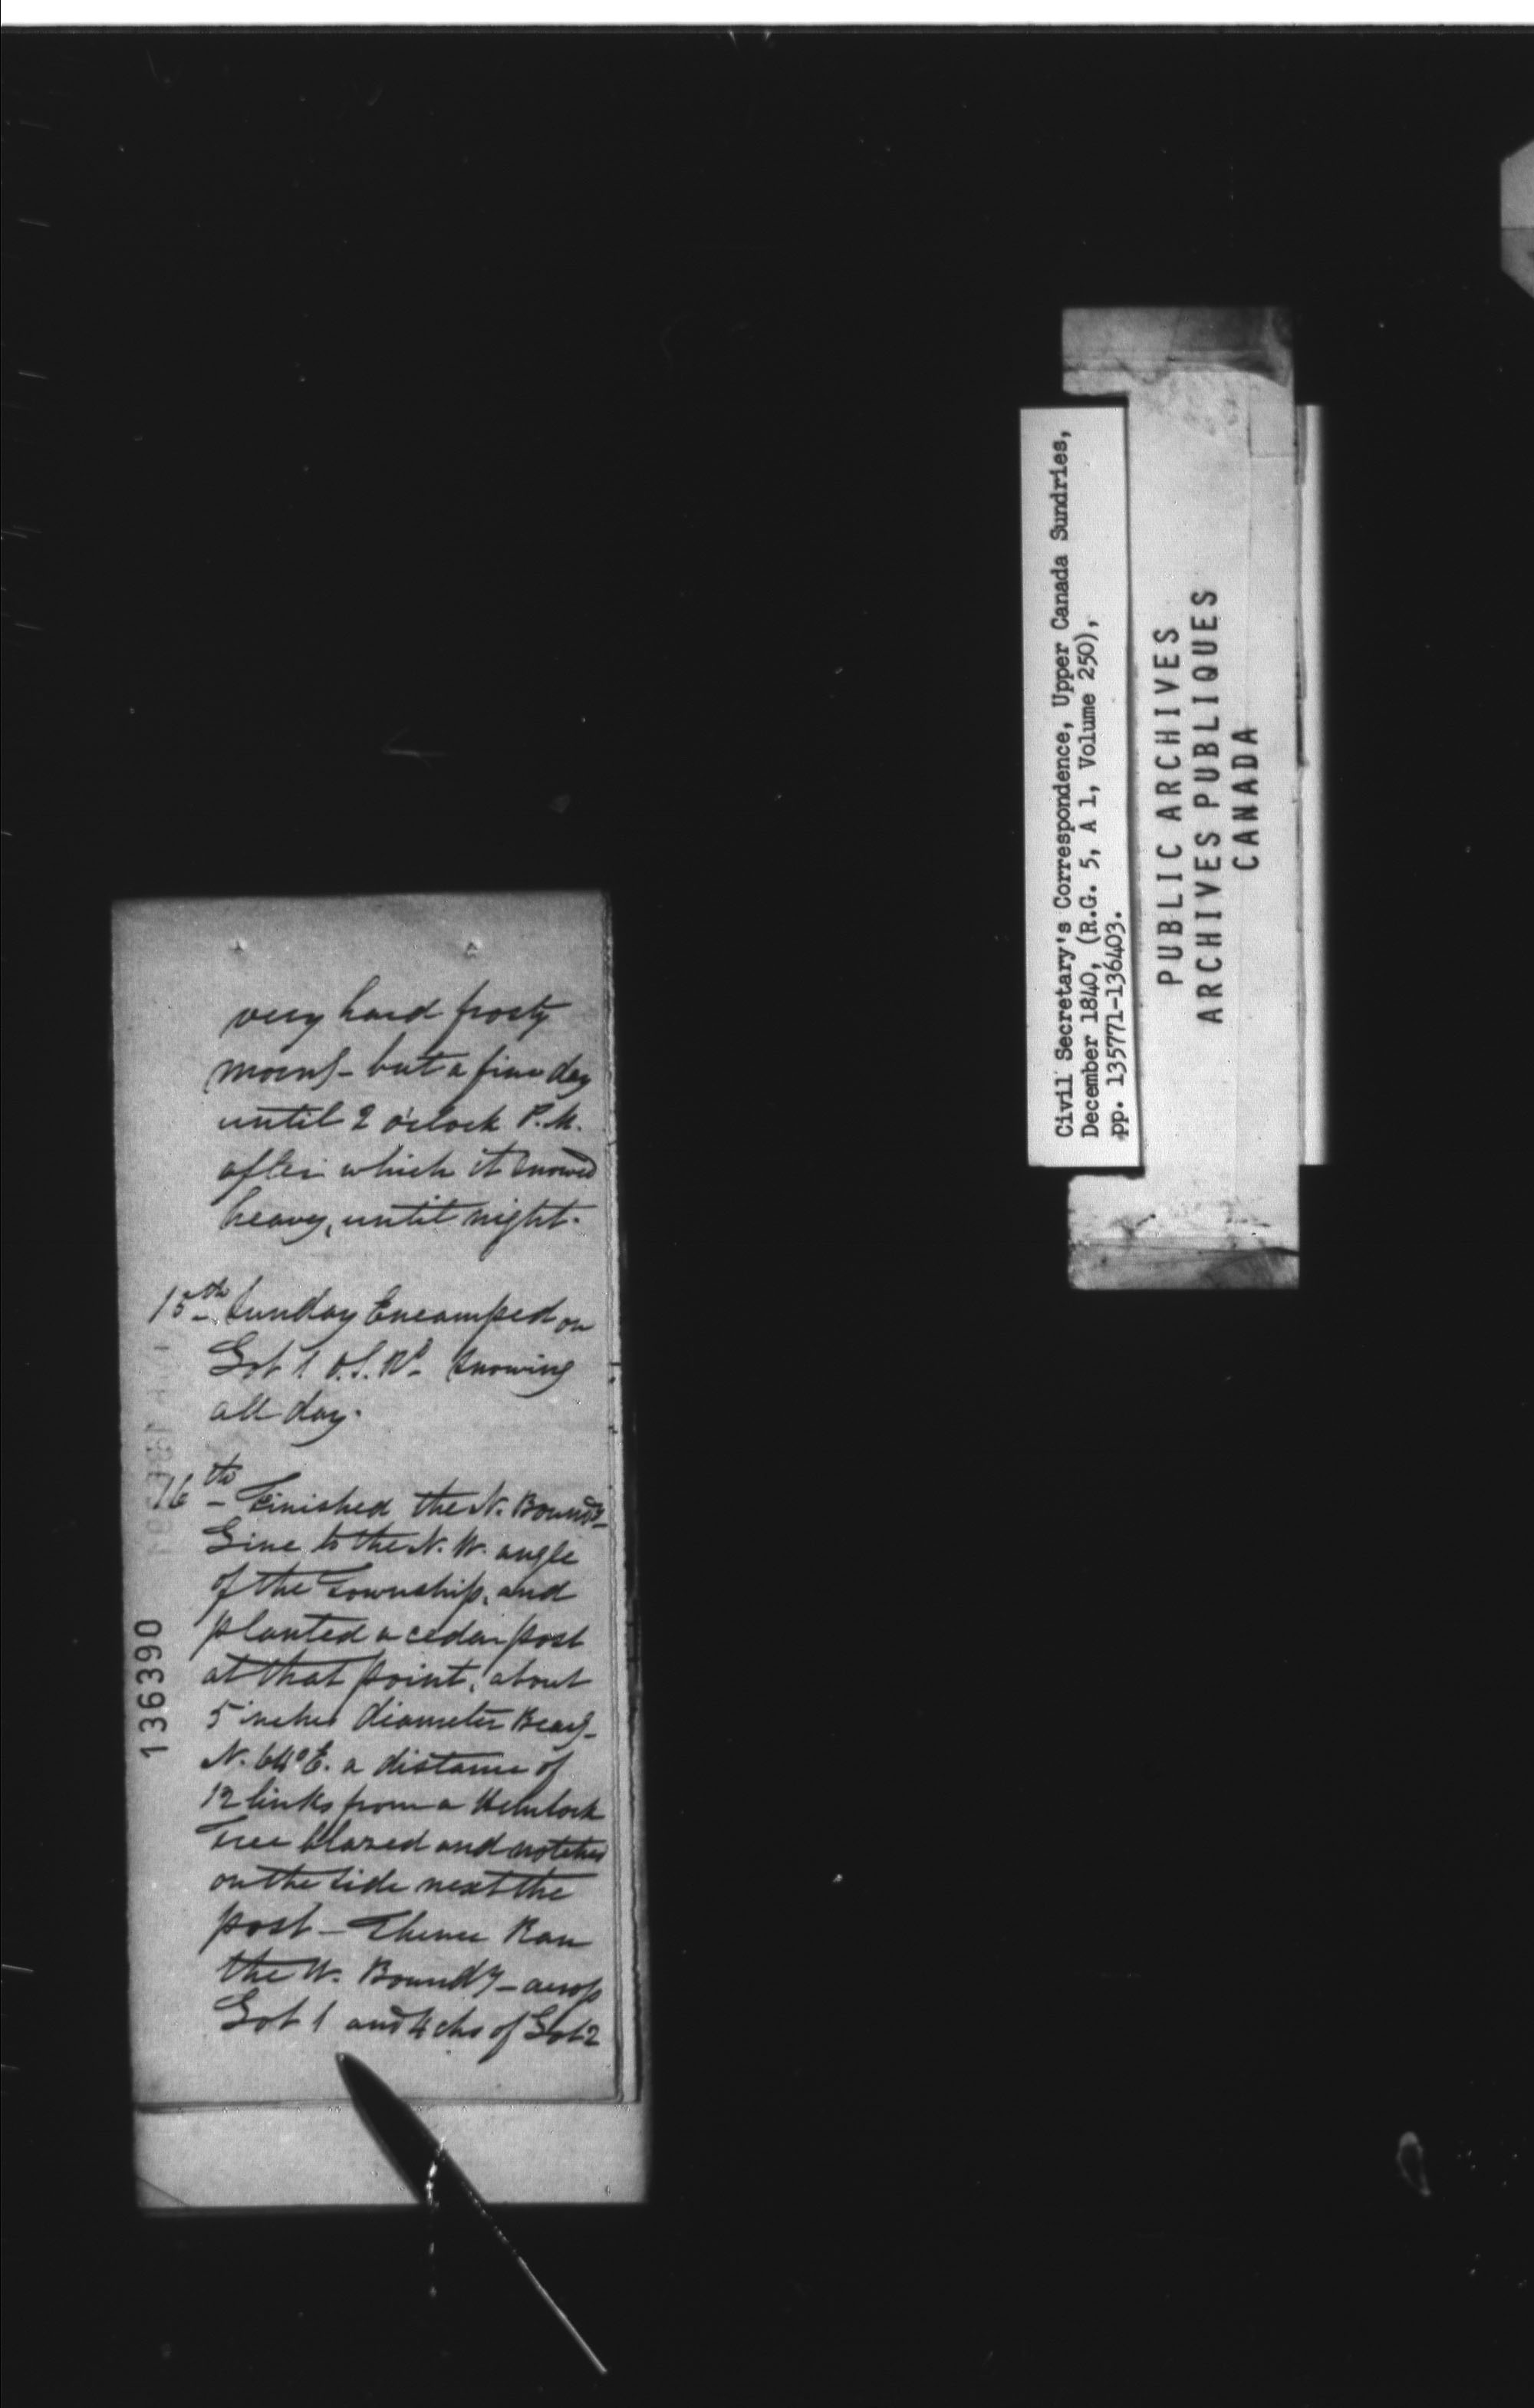 very hard frosty
morng - but a fine day
until 2 o'clock P.M.
after which it snowed
heavy, until night.
15th Sunday Encamped on
Lot 1 O.S.Rd. Snowing
all day.
16th - Finished the N. Boundy
Line to the N.W. angle
of the Township, and
planted a cedar post
at that point, about
5 inches diameter Bearg
N. 64° E. a distance of
12 links from a Hemlock
Tree blazed and notched
on the side next the
post - Thence Ran
the W. Boundy - across
Lot 1 and 4 chs of Lot 2
136390
Civil Secretary's Correspondence, Upper Canada Sundries,
December 1840, (R.G. 5, A 1, Volume 250),
pp. 135771-136403.
PUBLIC ARCHIVES
ARCHIVES PUBLIQUES
CANADA